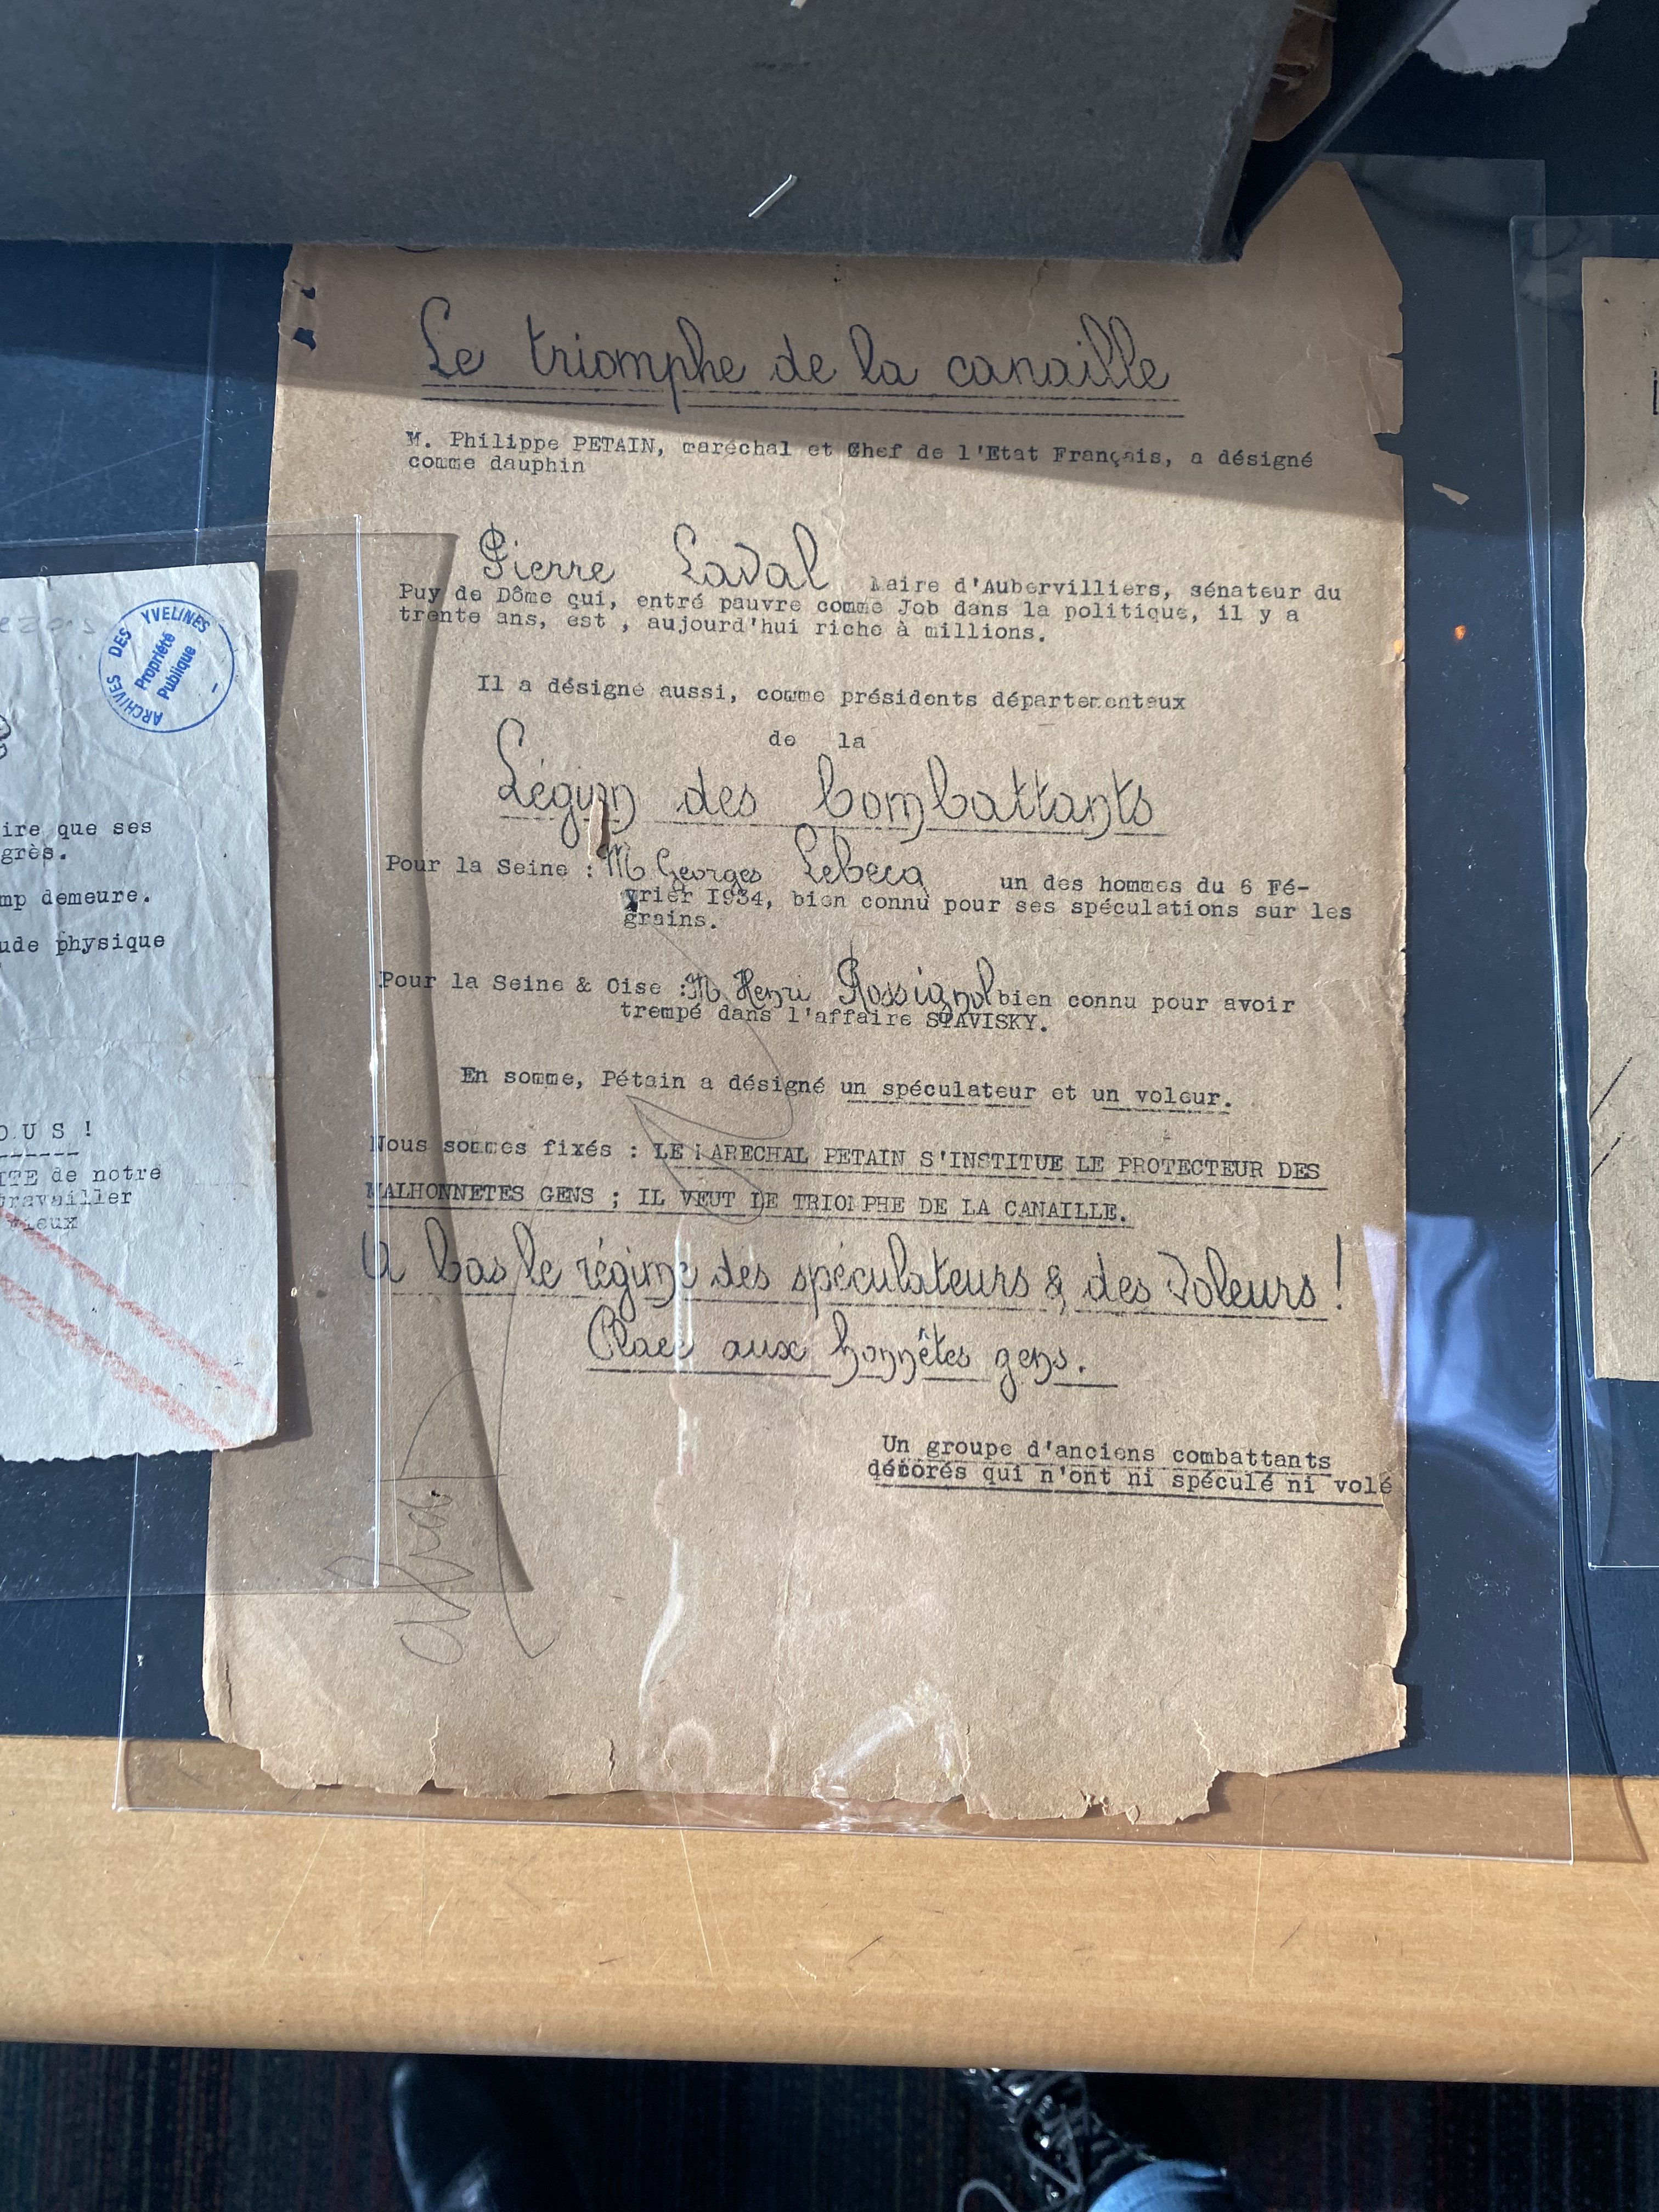 Le triomphe de la canaille
M. Philippe PETAIN, maréchal et Chef de l'Etat Français, a désigné
comme dauphin
Pierre Laval Maire d'Aubervilliers, sénateur du
Puy de Dôme qui, entré pauvre comme Job dans la politique, il y a
trente ans, est , aujourd'hui riche à millions.
Il a désigné aussi, comme présidents départementaux
de la
Légion des Combattants
Pour la Seine : M Georges Lebecq un des hommes du 6 Fé-
vrier 1934, bien connu pour ses spéculations sur les
grains.
Pour la Seine & Oise : M Henri Rossignol bien connu pour avoir
trempé dans l'affaire STAVISKY.
En somme, Pétain a désigné un spéculateur et un voleur.
Nous sommes fixés : LE MARECHAL PETAIN S'INSTITUE LE PROTECTEUR DES
MALHONNETES GENS ; IL VEUT LE TRIOMPHE DE LA CANAILLE.
A bas le régime des spéculateurs & des Voleurs !
Place aux honnêtes gens.
Un groupe d'anciens combattants
décorés qui n'ont ni spéculé ni volé
ARCHIVES DES YVELINES -
Propriété
Publique
ire que ses
grès.
mp demeure.
ude physique
OUS !
ITE de notre
travailler
ieux